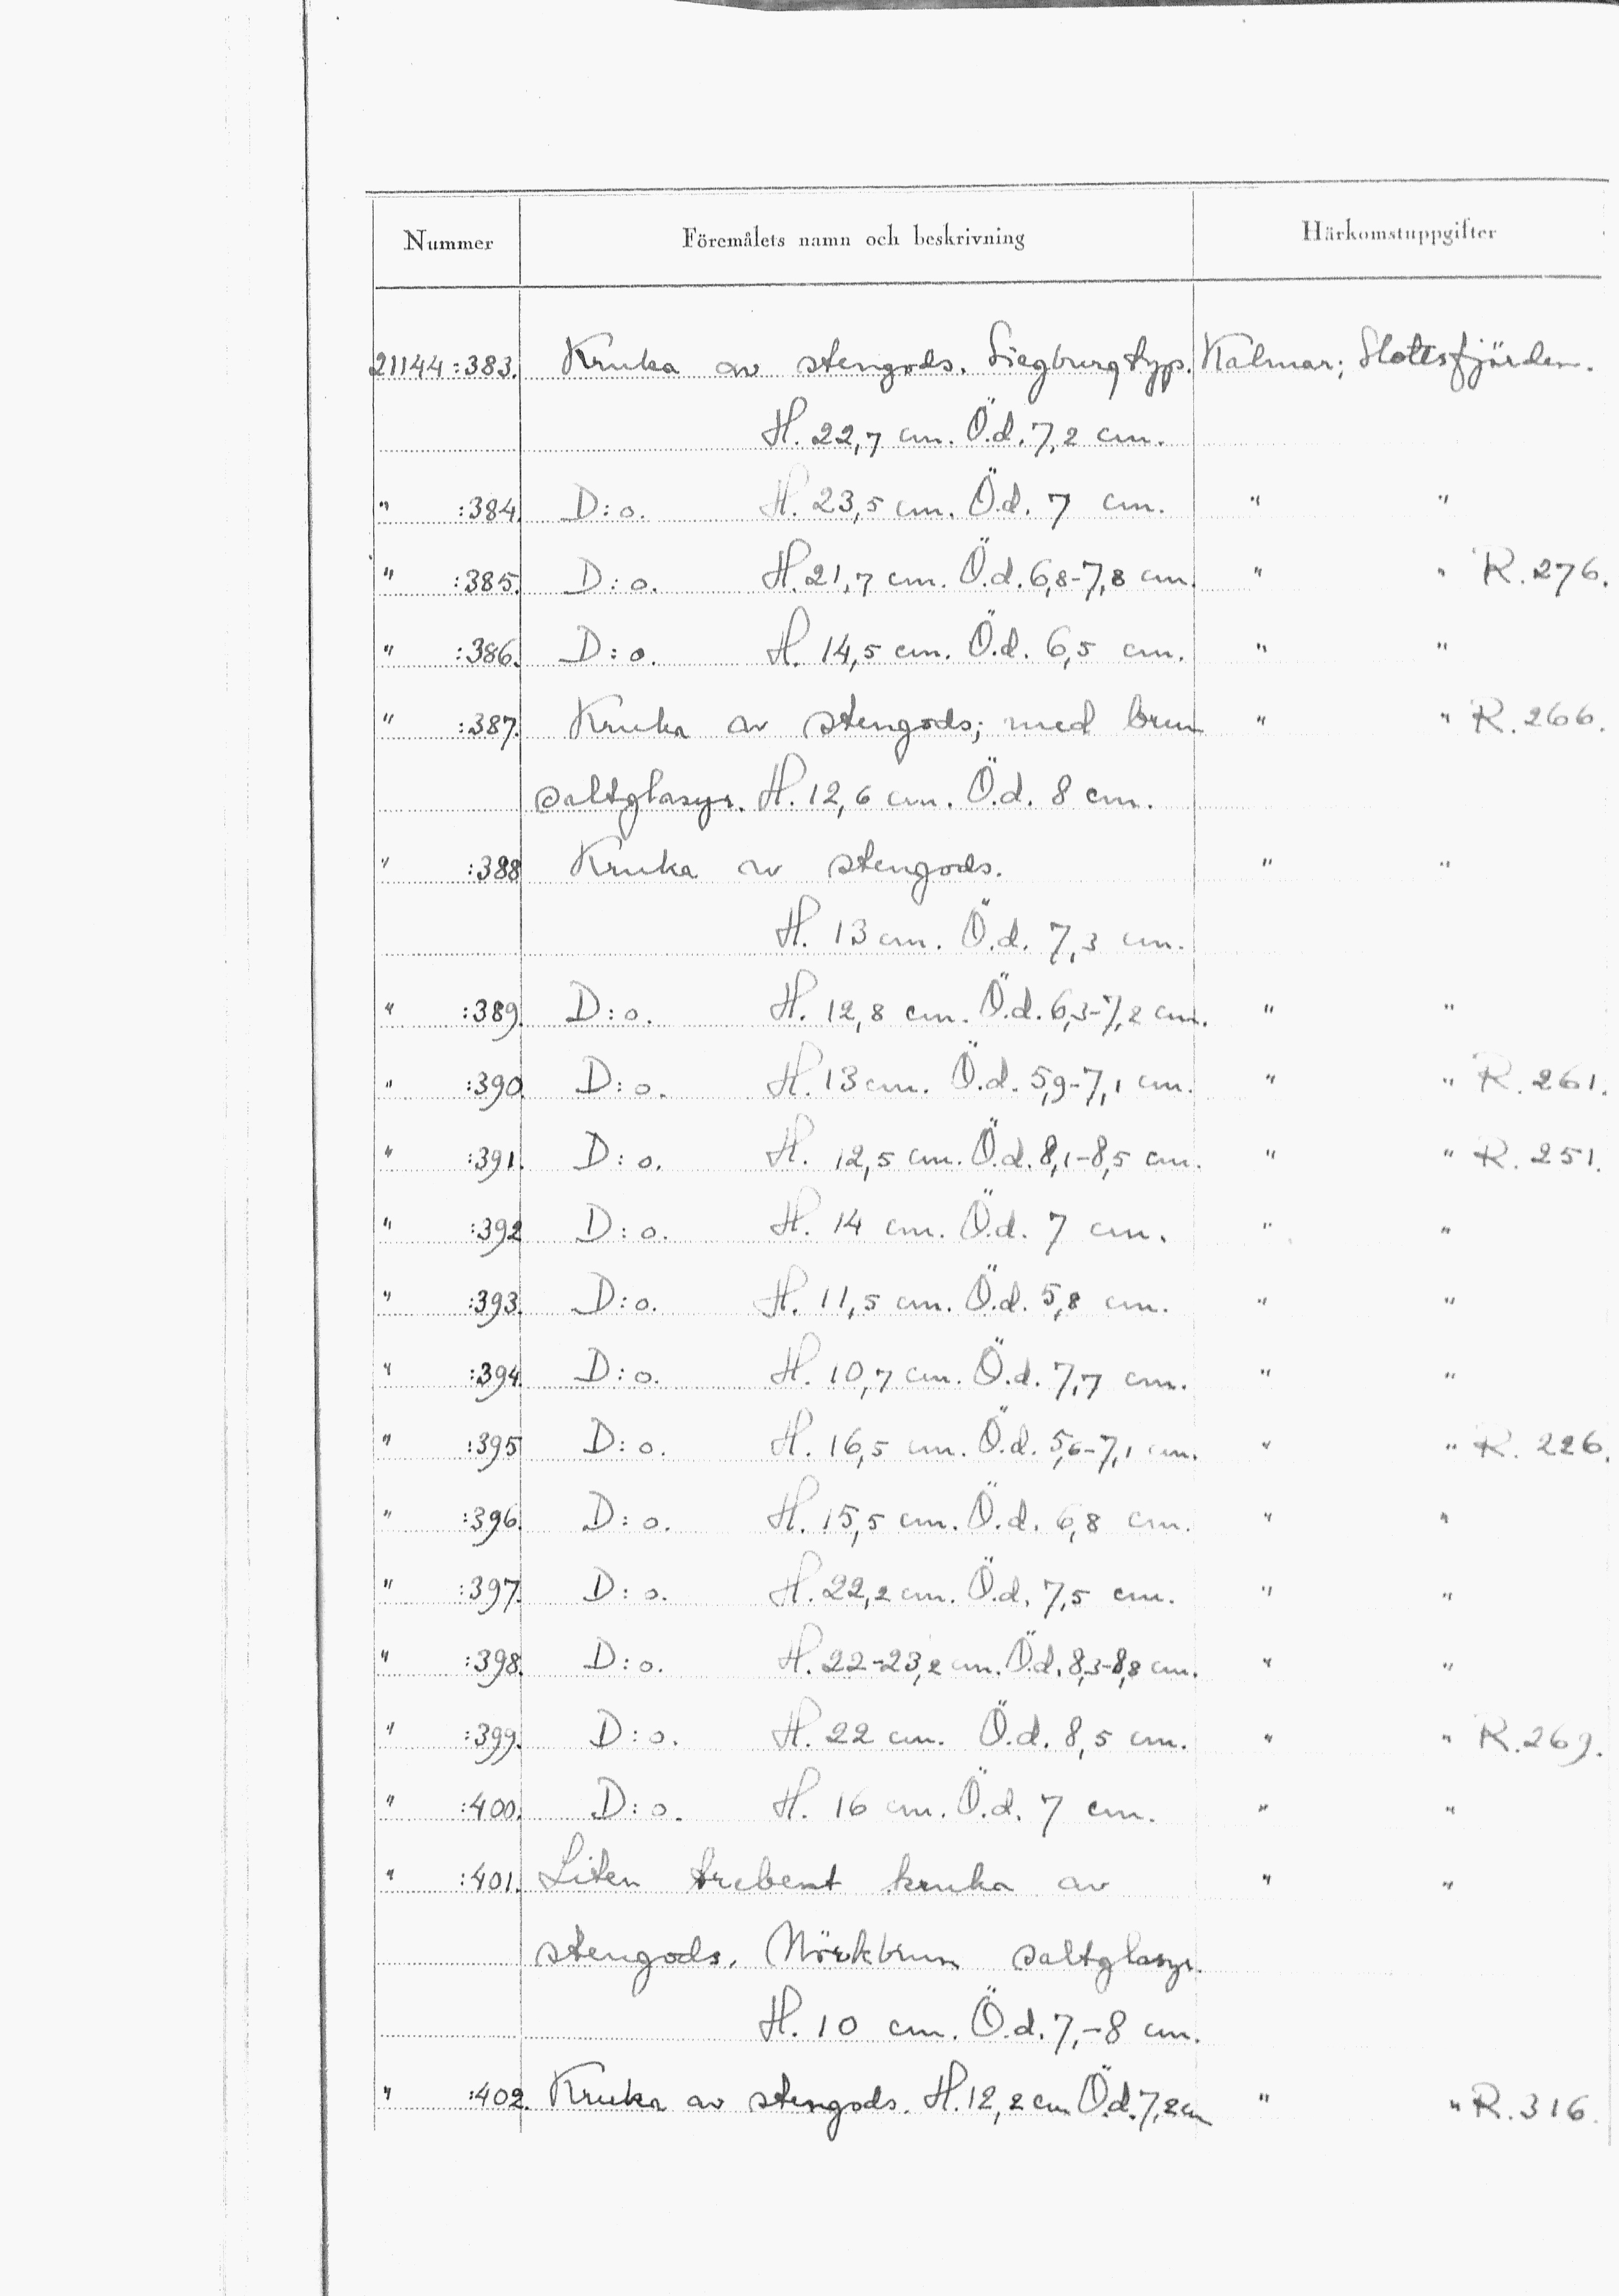 Nummer Föremålets namn och beskrivning Härkomstuppgifter
21144:383. Kruka av stengods. Siegburgtyp. Kalmar; Slottsfjärden.
H. 22,7 cm. Ö.d. 7,2 cm.
" :384. D:o. H. 23,5 cm. Ö.d. 7 cm. " "
" :385. D:o. H. 21,7 cm. Ö.d. 6,8-7,8 cm. " " R. 276.
" :386. D:o. H. 14,5 cm. Ö.d. 6,5 cm. " "
" :387. Kruka av stengods; med brun " " R. 266.
saltglasyr. H. 12,6 cm. Ö.d. 8 cm.
" :388 Kruka av stengods. " "
H. 13 cm. Ö.d. 7,3 cm.
" :389. D:o. H. 12,8 cm. Ö.d. 6,3-7,2 cm. " "
" :390. D:o. H. 13 cm. Ö.d. 5,9-7,1 cm. " " R. 261.
" :391. D:o. H. 12,5 cm. Ö.d. 8,1-8,5 cm. " " R. 251.
" :392 D:o. H. 14 cm. Ö.d. 7 cm. " "
" :393. D:o. H. 11,5 cm. Ö.d. 5,8 cm. " "
" :394. D:o. H. 10,7 cm. Ö.d. 7,7 cm. " "
" :395 D:o. H. 16,5 cm. Ö.d. 5,6-7,1 cm. " " R. 226.
" :396. D:o. H. 15,5 cm. Ö.d. 6,8 cm. " "
" :397. D:o. H. 22,2 cm. Ö.d. 7,5 cm. " "
" :398. D:o. H. 22-23,2 cm. Ö.d. 8,3-8,8 cm. " "
" :399. D:o. H. 22 cm. Ö.d. 8,5 cm. " " R. 269.
" :400. D:o. H. 16 cm. Ö.d. 7 cm. " "
" :401. Liten trebent kruka av " "
stengods. Mörkbrun saltglasyr.
H. 10 cm. Ö.d. 7,-8 cm.
" :402. Kruka av stengods. H. 12,2 cm Ö.d. 7,2 cm " " R. 316.